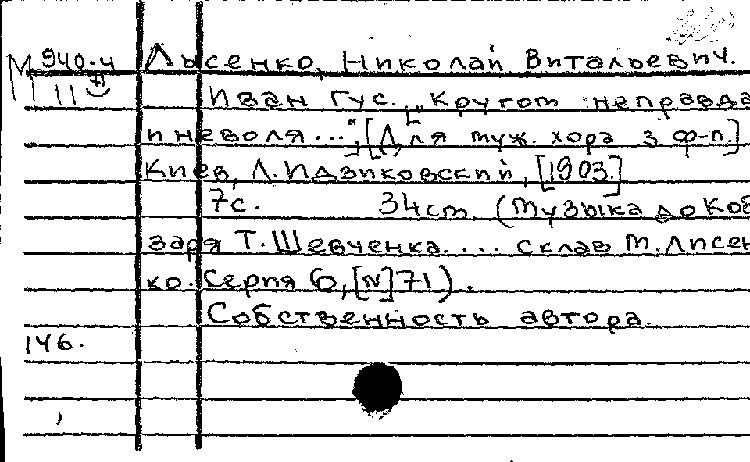 940-4 Лысенко, Николай Витальевич.
Иван Гус. „Кругом неправда
и неволя...", [Для муж. хора з ф-п.]
Киев, Л. Идзиковский, [1903.]
7с. 34 см. (Музыка до Коб
заря Т. Шевченка.... склав М. Лисен
ко. Серия 6, [N] 71).
Собственность автора.
146.